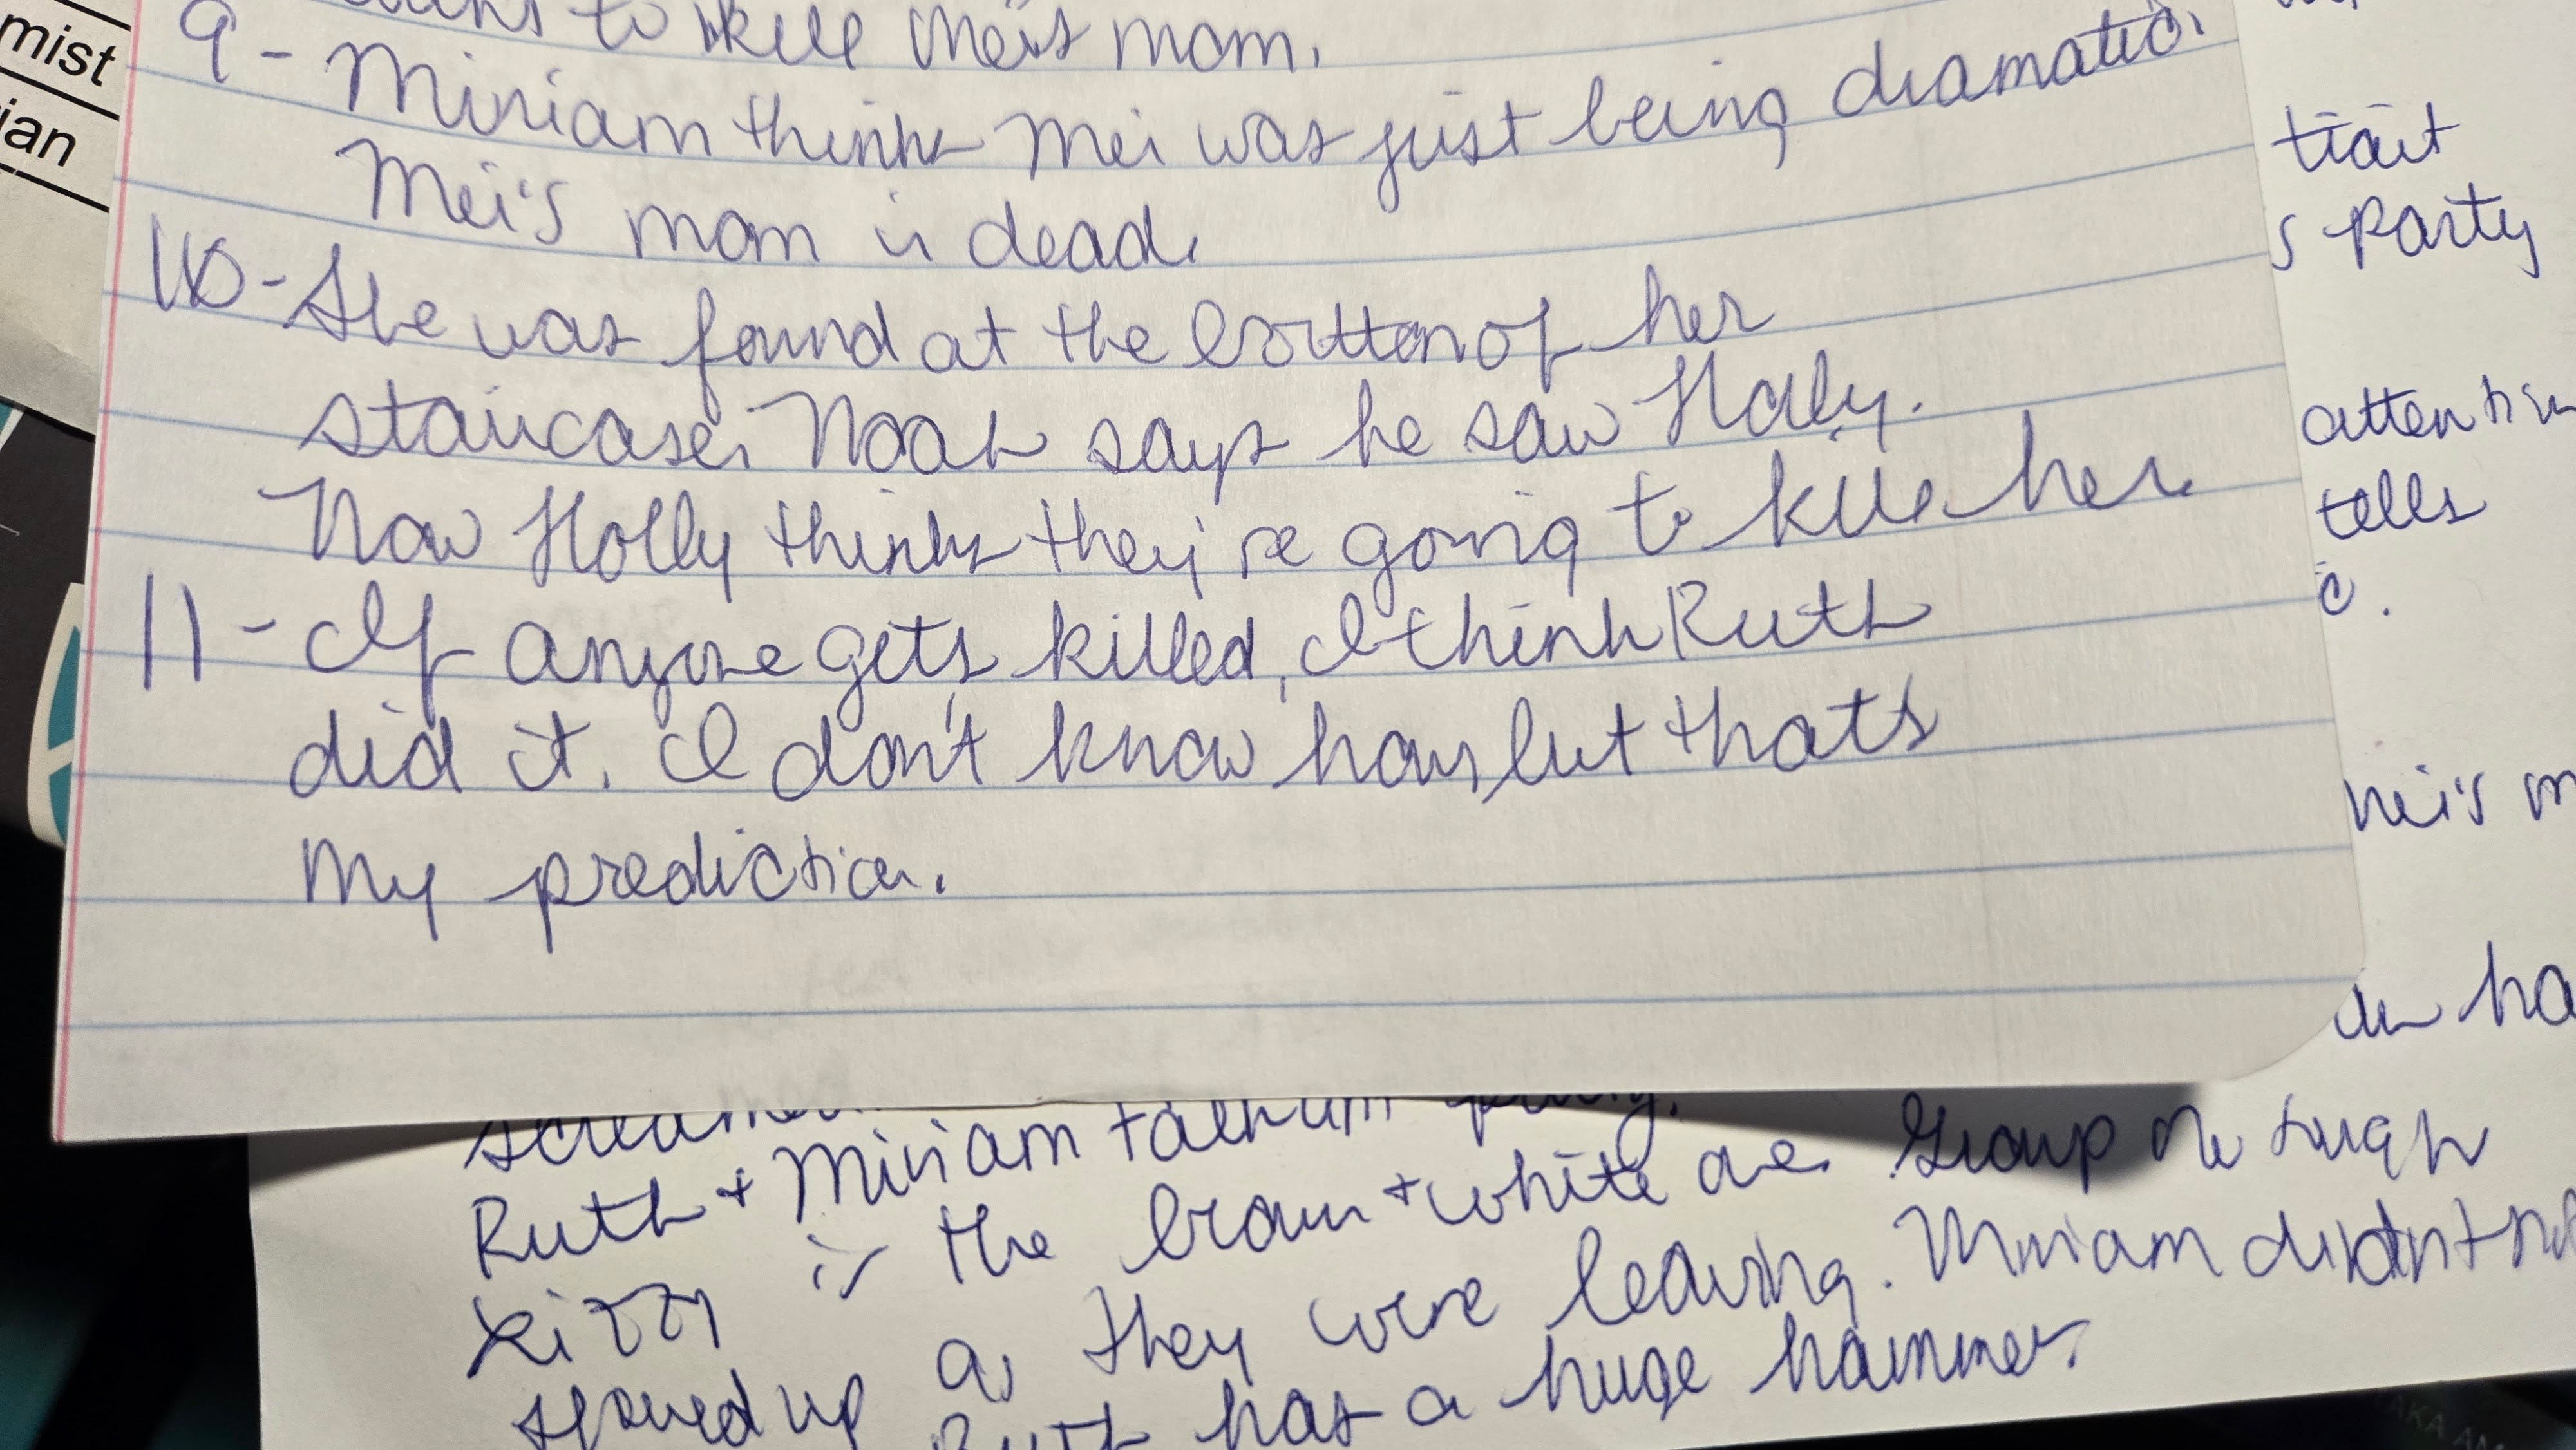 mist
ian
to kill Mei's mom.
9- Miriam thinks Mei was just being dramatic.
Mei's mom is dead.
10- She was found at the bottom of her
staircase. Noah says he saw Holly.
Now Holly thinks they're going to kill her.
11- If anyone gets killed, I think Ruth
did it. I don't know how, but that's
my prediction.
trait
s party
attention
tells
c.
Mei's m
ha
screamed
Ruth + Miriam talk
Kizzy is the brown + white one. Group
showed up as they were leaving. Miriam didn't
Ruth has a huge hammer.